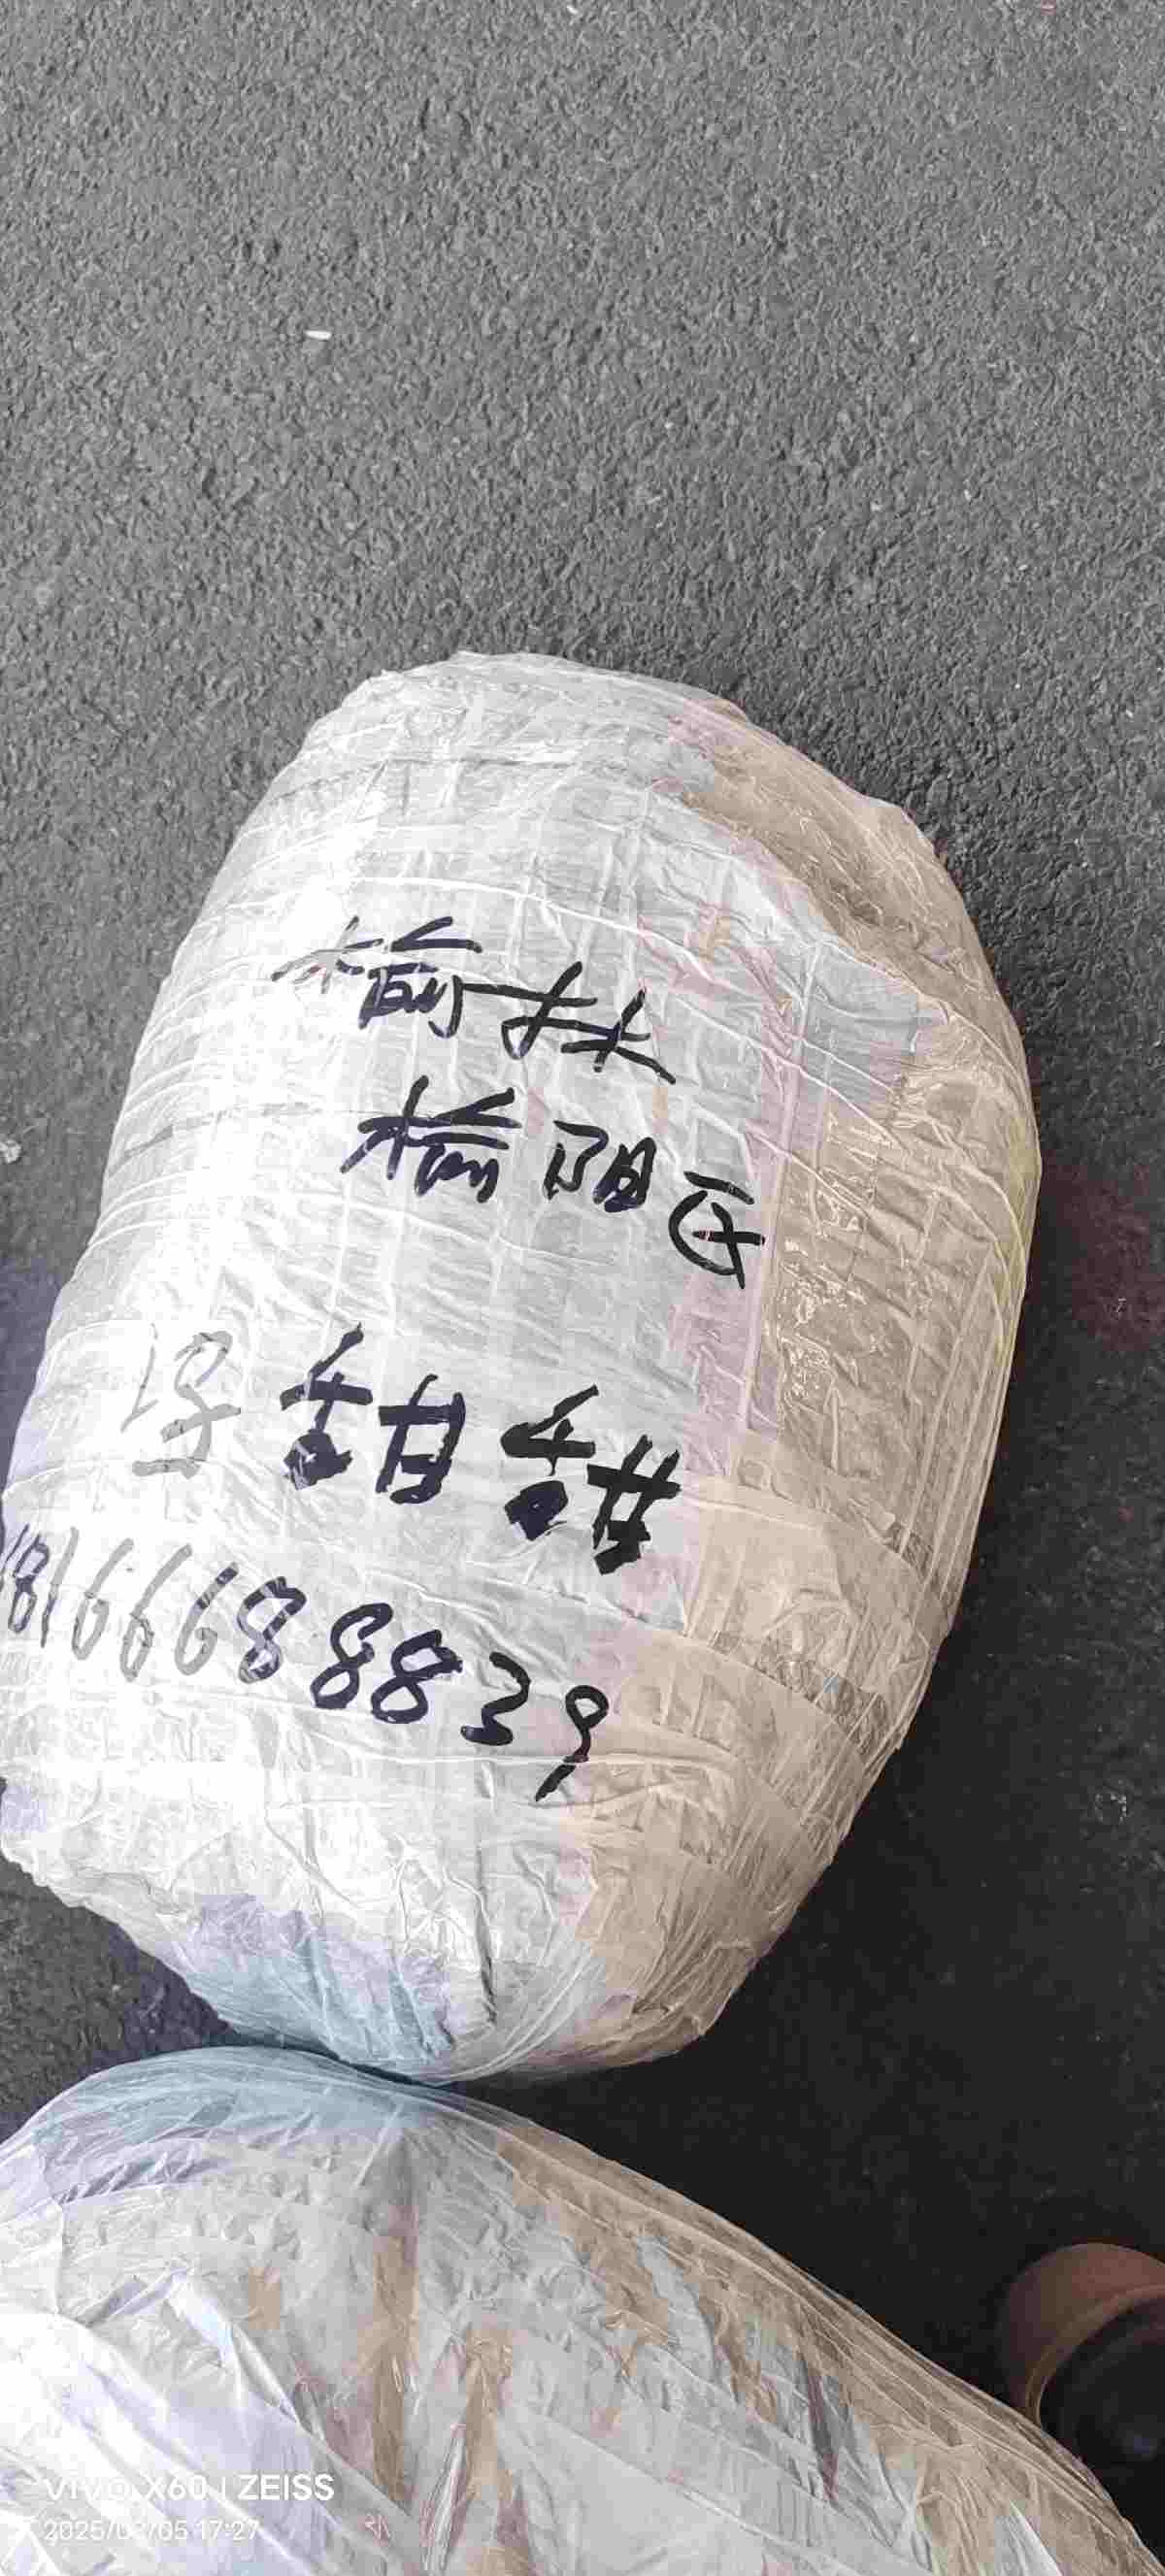 榆林
榆阳区
甜甜
18166688839
vivo X60 | ZEISS
17:27